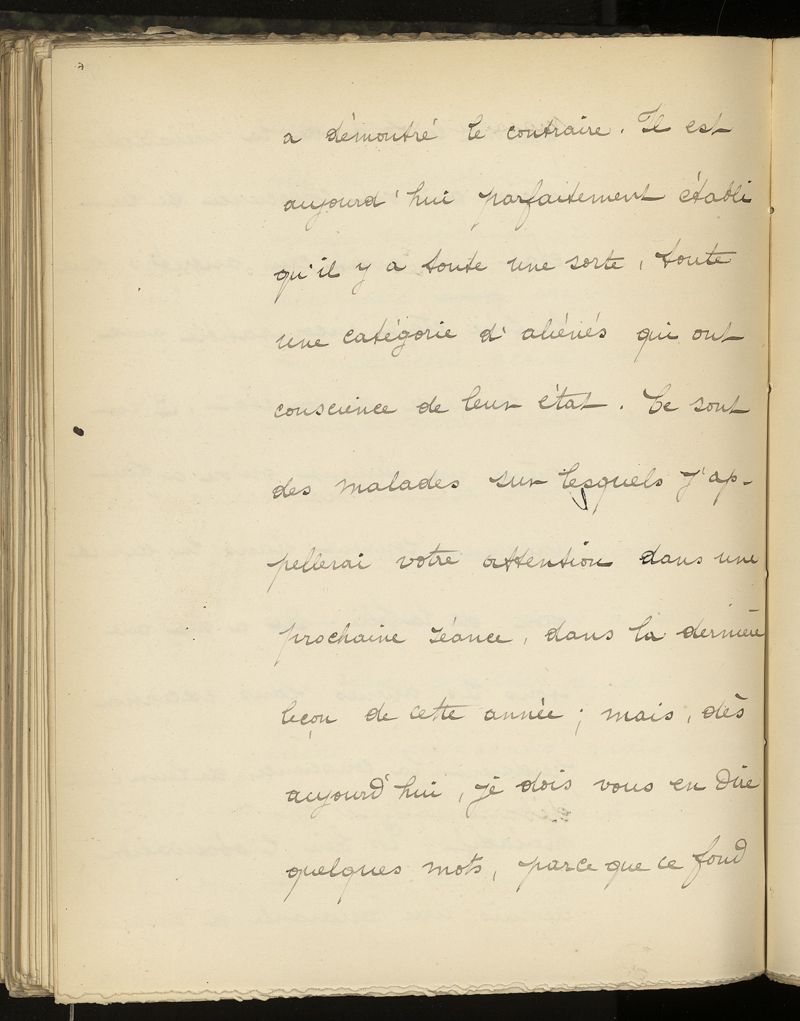 a démontré le contraire. Il est
aujourd'hui parfaitement établi
qu'il y a toute une sorte, toute
une catégorie d'aliénés qui ont
conscience de leur état. Ce sont
des malades sur lesquels j'ap-
pellerai votre attention dans une
prochaine séance, dans la dernière
leçon de cette année ; mais, dès
aujourd'hui, je dois vous en dire
quelques mots, parce que ce fond